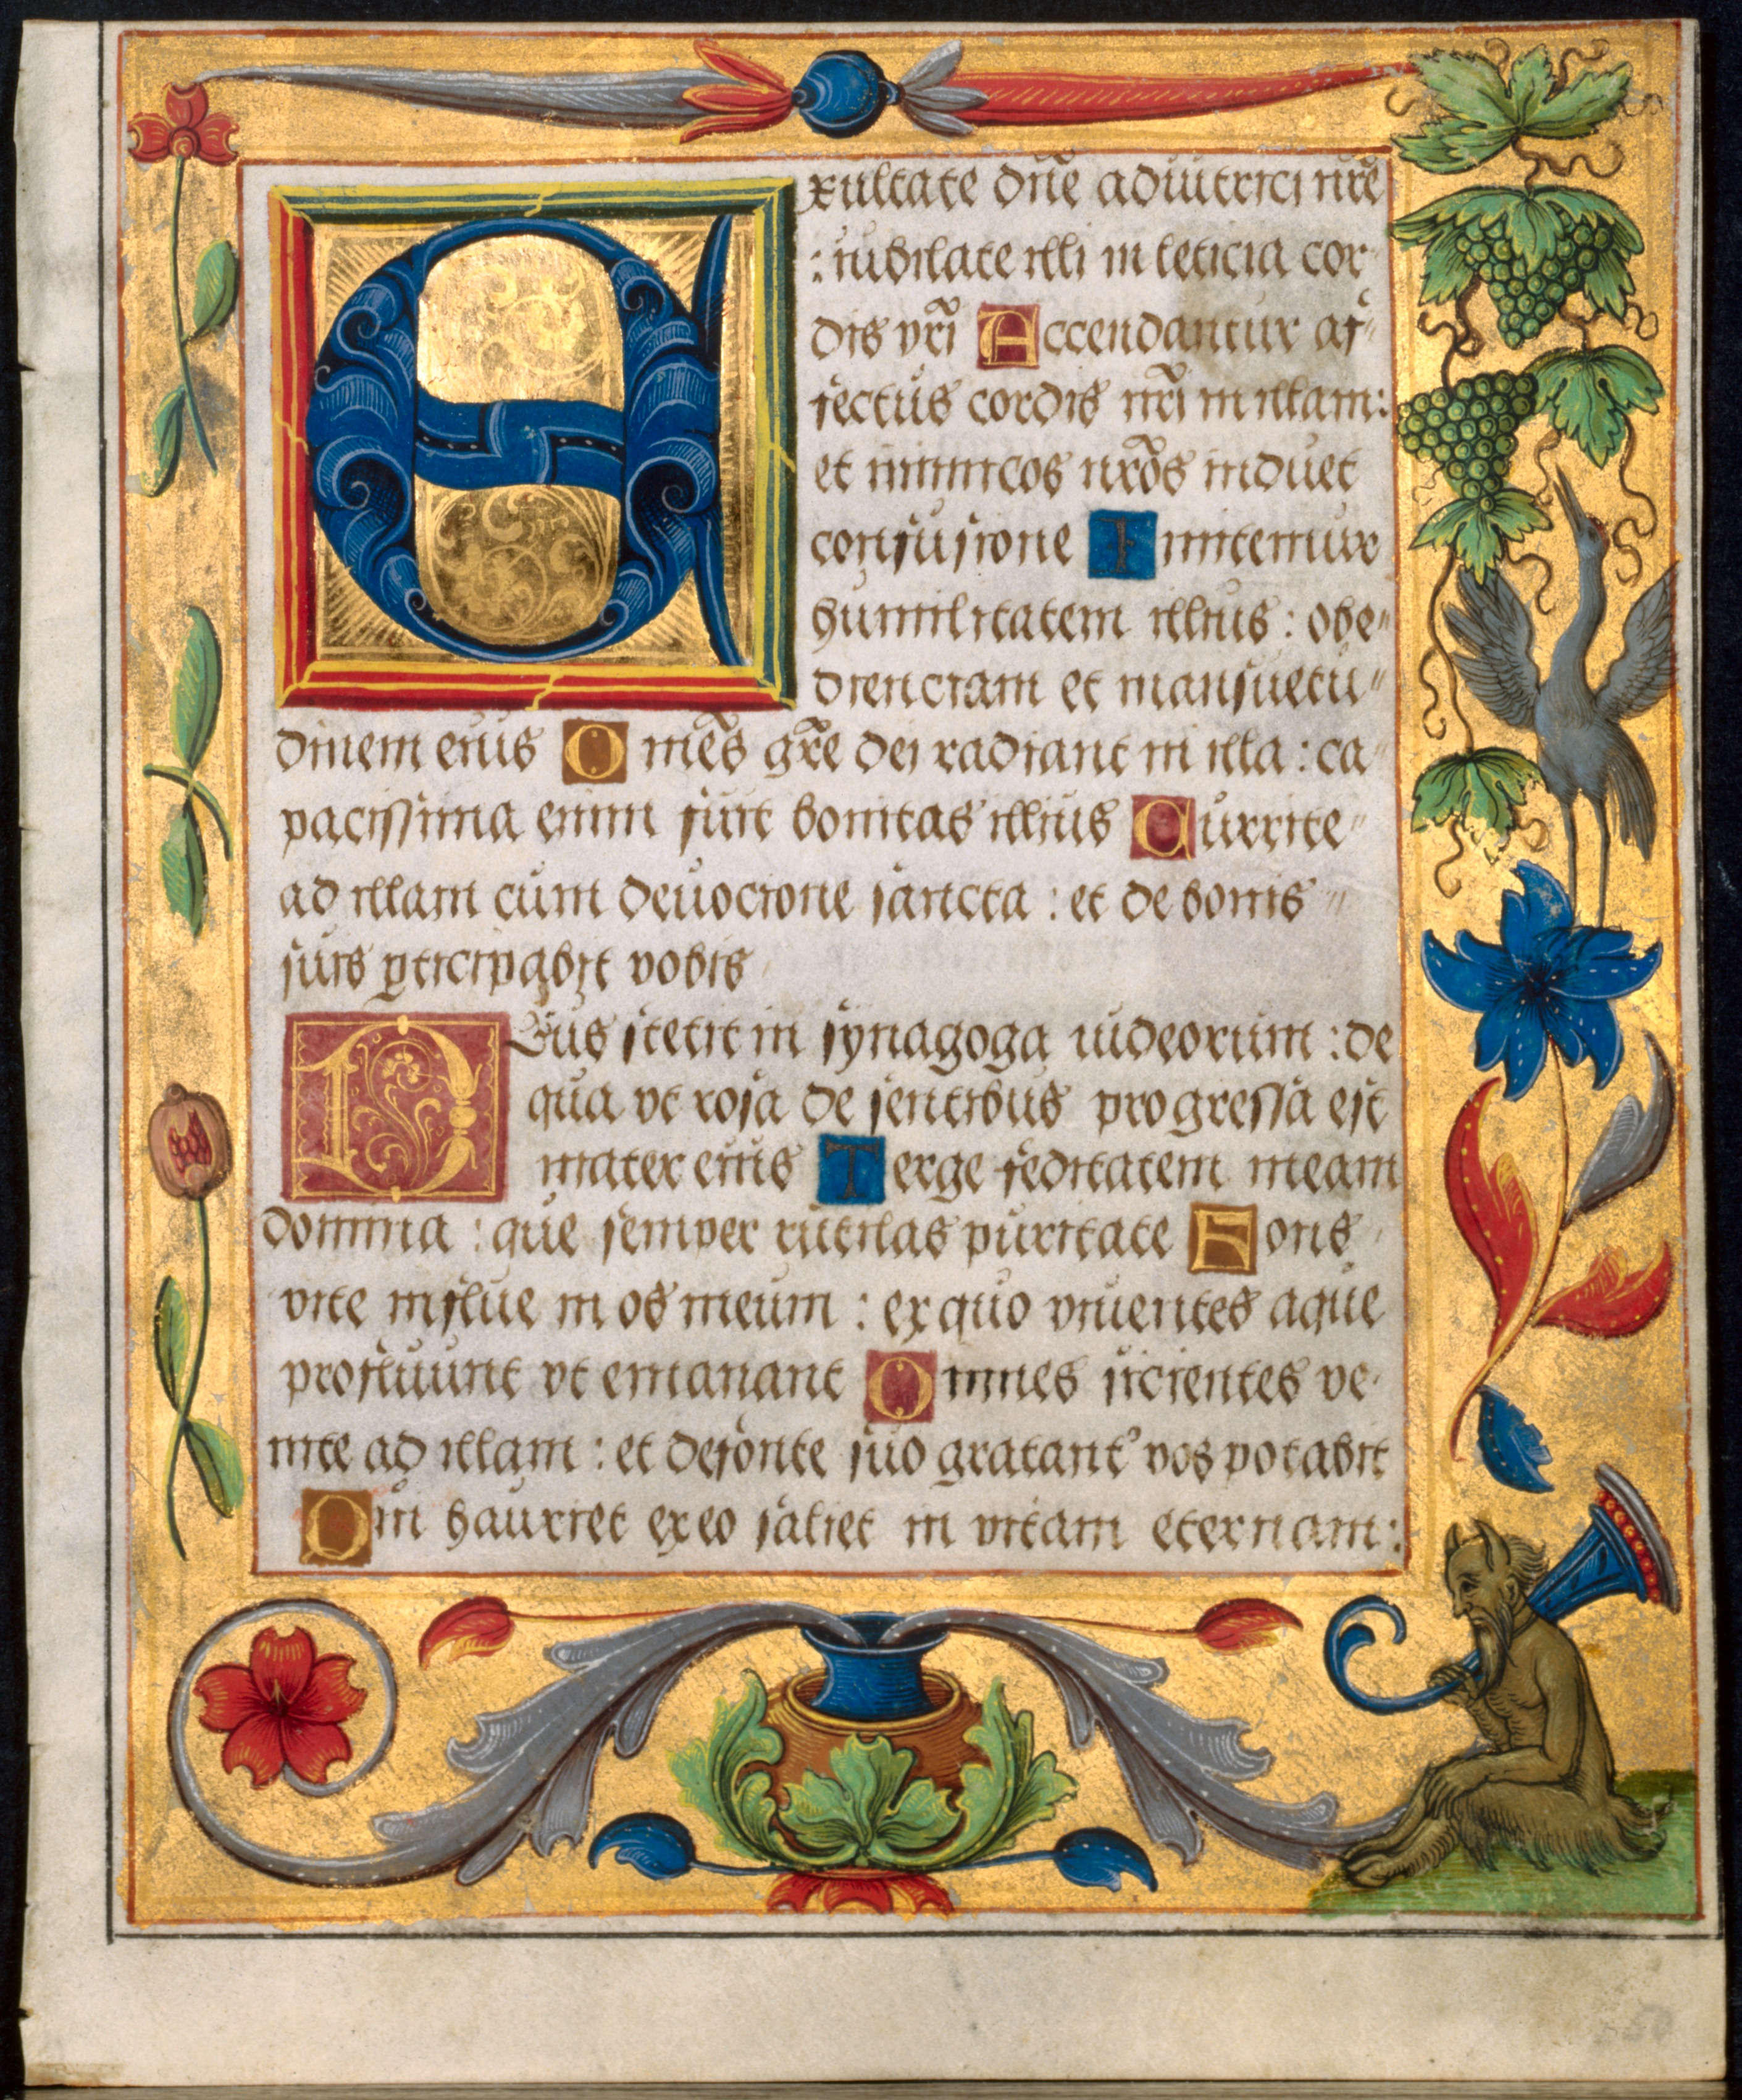 Exultate dn̄e adiutrici nr̄e
: iubilate illi in leticia cor-
dis vr̄i Accendantur af-
fectus cordis nr̄i in illam:
et inimicos nr̄os induet
confusione Imitemur
humilitatem illius : obe-
dienciam et mansuetu-
dinem eius Om̄es gr̄e dei radiant in illa : ca-
pacissima enim fuit bonitas illius Currite
ad illam cum deuocione sancta : et de bonis
suis ꝑticipabit vobis
Deus stetit in synagoga iudeorum : de
qua vt rosa de sentibus progressa est
mater eius Terge feditatem meam
domina : que semper rutilas puritate Fons
vite influe in os meum : ex quo viuentes aque
profluunt vt emanant Omnes sicientes ve-
nite ad illam : et defonte suo gratant' vos potabit
Qui hauriet ex eo saliet in vitam eternam :
50